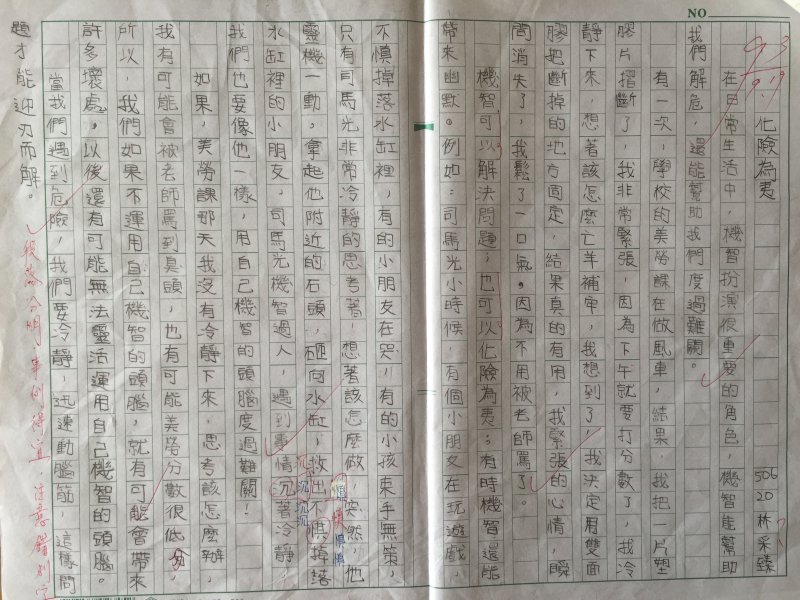 NO
93
9.19
化險為夷
506
20
林采臻
在日常生活中，機智扮演很重要的角色，機智能幫助
我們解危，還能幫助我們度過難關。
有一次，學校的美勞課在做風車，結果，我把一片塑
膠片摺斷了，我非常緊張，因為下午就要打分數了，我冷
靜下來，想著該怎麼亡羊補牢，我想到了，我決定用雙面
膠把斷掉的地方固定，結果真的有用，我緊張的心情，瞬
間消失了，我鬆了一口氣。因為不用被老師罵了。
機智可以解決問題，也可以化險為夷；有時機智還能
帶來幽默。例如：司馬光小時候，有個小朋友在玩遊戲，
不慎掉落水缸裡，有的小朋友在哭，有的小孩束手無策，
只有司馬光非常冷靜的思考著，想著該怎麼做，突然，他
靈機一動，拿起他附近的石頭，砸向水缸，救出不慎掉落
水缸裡的小朋友，司馬光機智過人，遇到事情沉著冷靜，
慎慎慎慎
沉沉沉沉
我們也要像他一樣，用自己機智的頭腦度過難關！
如果，美勞課那天我沒有冷靜下來，思考該怎麼辦，
我有可能會被老師罵到臭頭，也有可能美勞分數很低分，
所以，我們如果不運用自己機智的頭腦，就有可能會帶來
許多壞處，以後還有可能無法靈活運用自己機智的頭腦。
當我們遇到危險，我們要冷靜，迅速動腦筋，這樣問
題才能迎刃而解。
段落分明，事例得宜，注意錯別字